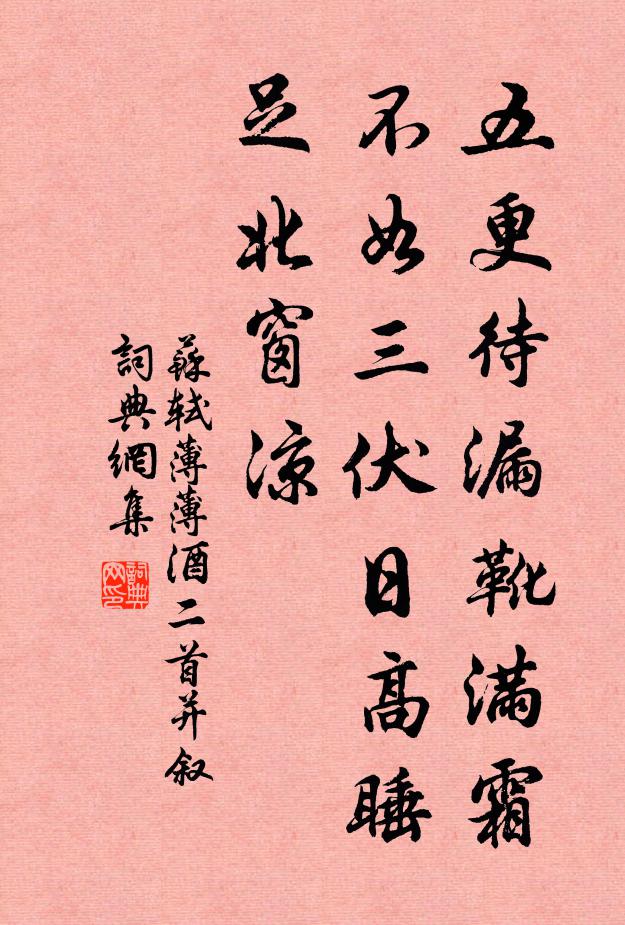 五更待漏靴滿霜
不如三伏日高睡
足北窗涼
蘇軾薄薄酒二首并叙
詞典網集
詞典網印